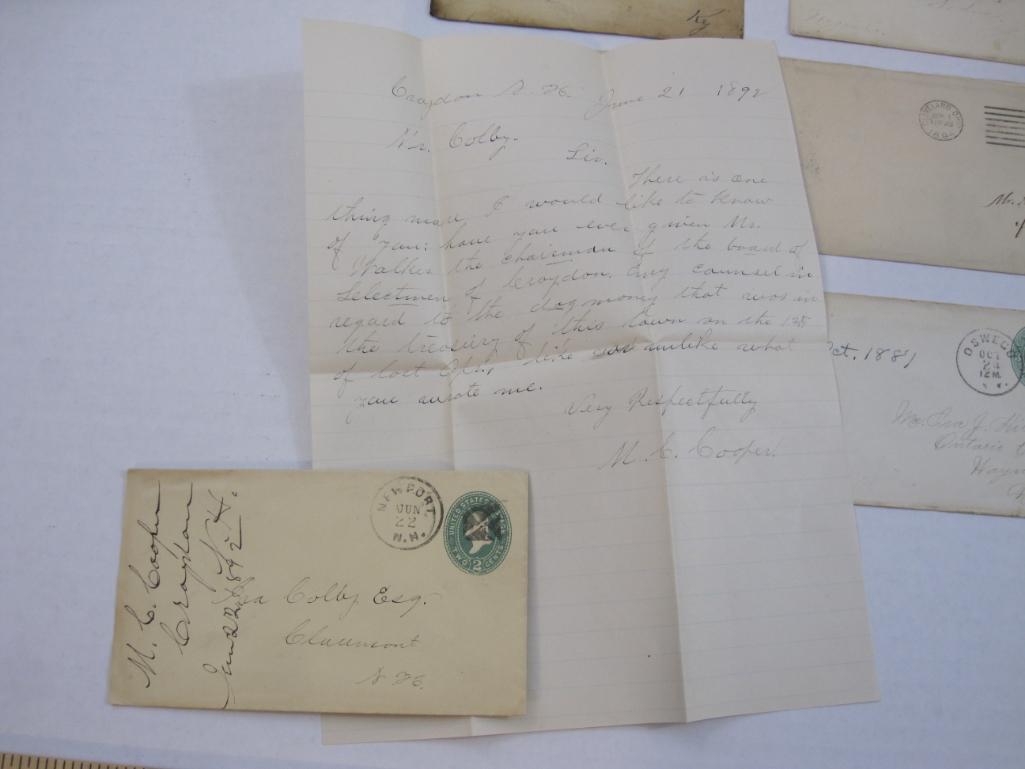 Ky
Croydon N. H. June 21 1892
Mr. Colby.
Sir.
There is one
thing more I would like to know
of you: have you ever given Mr.
Walker the chairman of the board of
Selectmen of Croydon, any counsel in
regard to the dog money that was in
the treasury of this town on the 1st
of last Apl, like or unlike what
you wrote me.
Very Respectfully
M. C. Cooper.
M. C. Cooper
Croydon
N. H.
June 22 1892
NEWPORT
JUN
22
N.H.
UNITED STATES
TWO 2 CENTS
Ira Colby Esq.
Claremont
N. H.
CLEVELAND, OHIO
Mr.
Oct. 1881
OSWEGO
OCT
24
12 M
N.Y.
Ontario